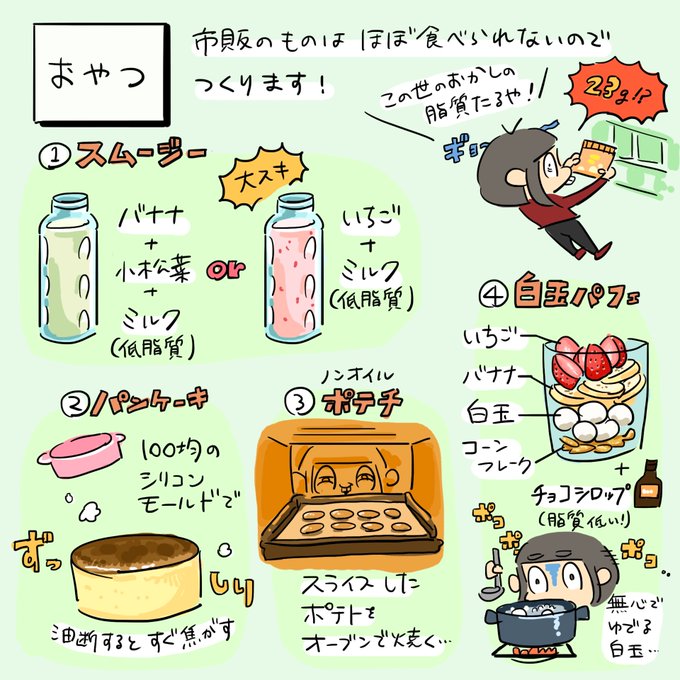 おやつ
市販のものは ほぼ食べられないので
つくります！
この世のおかしの
脂質たるや！
23g!?
ギョッ
①スムージー
バナナ
+
小松菜
+
ミルク
(低脂質)
or
大スキ
いちご
+
ミルク
(低脂質)
②パンケーキ
100均の
シリコン
モールドで
ずっ
しり
油断するとすぐ焦がす
③ノンオイル
ポテチ
スライスした
ポテトを
オーブンで焼く…
④白玉パフェ
いちご
バナナ
白玉
コーン
フレーク
+
チョコシロップ
(脂質低い！)
ポコ
ポコ
ポコ…
無心で
ゆでる
白玉…